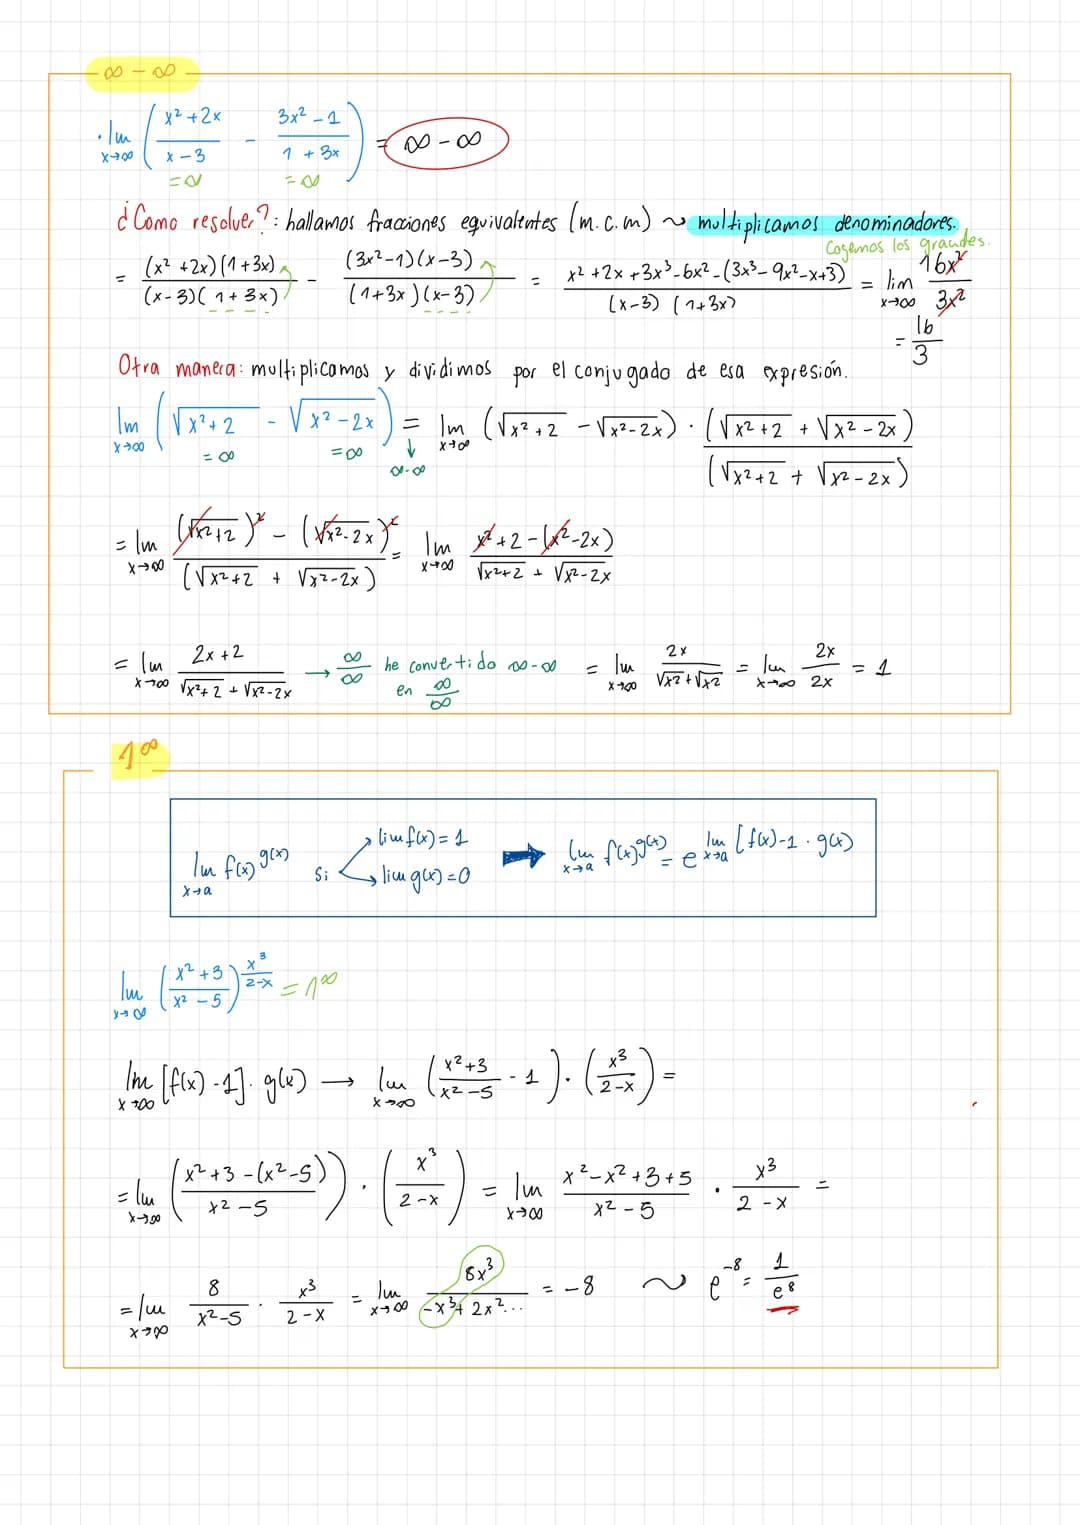 ∞ - ∞
· lm x→∞ ( (x² + 2x)/(x - 3) - (3x² - 1)/(1 + 3x) ) = ∞ - ∞
= ∞ = ∞
¿Como resolver?: hallamos fracciones equivalentes (m.c.m) ~ multiplicamos denominadores.
Cogemos los grandes.
= (x² + 2x)(1 + 3x)/(x - 3)(1 + 3x) - (3x² - 1)(x - 3)/(1 + 3x)(x - 3) = x² + 2x + 3x³ - 6x² - (3x³ - 9x² - x + 3)/(x - 3)(1 + 3x) = lim x→∞ 16x²/3x²
= 16/3
Otra manera: multiplicamos y dividimos por el conjugado de esa expresión.
lm x→∞ ( √x² + 2 - √x² - 2x ) = lm x→∞ (√x² + 2 - √x² - 2x) · (√x² + 2 + √x² - 2x)/(√x² + 2 + √x² - 2x)
= ∞ = ∞ ↓ ∞ - ∞
= lm x→∞ (√x² + 2)² - (√x² - 2x)²/(√x² + 2 + √x² - 2x) = lm x→∞ x² + 2 - (x² - 2x)/√x² + 2 + √x² - 2x
= lm x→∞ 2x + 2/√x² + 2 + √x² - 2x → ∞/∞ he convertido ∞ - ∞ en ∞/∞ = lm x→∞ 2x/√x² + √x² = lm x→∞ 2x/2x = 1
1^∞
lm x→a f(x)^g(x) Si lim f(x) = 1 lim g(x) = 0 → lm x→a f(x)^g(x) = e^lm x→a [f(x) - 1 · g(x)
lm x→∞ ( x² + 3/x² - 5 )^x³/2-x = 1^∞
lm x→∞ [f(x) - 1] · g(x) → lm x→∞ ( x² + 3/x² - 5 - 1 ) · ( x³/2 - x ) =
= lm x→∞ ( x² + 3 - (x² - 5)/x² - 5 ) · ( x³/2 - x ) = lm x→∞ x² - x² + 3 + 5/x² - 5 · x³/2 - x =
= lm x→∞ 8/x² - 5 · x³/2 - x = lm x→∞ 8x³/-x³ + 2x²... = -8 ~ e^-8 = 1/e^8